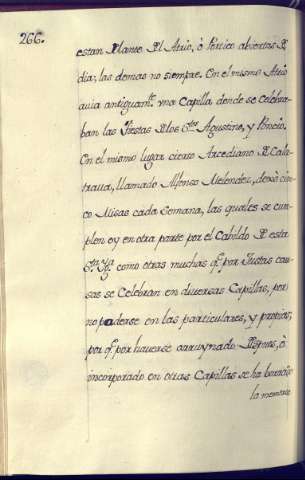 266.
estan delante del Atrio, ò Portico abiertas de
dia; las demas no siempre. En el mismo Atrio
auia antiguam.te vna Capilla donde se celebra-
ban las Fiestas de los S.tos Agustino, y Poncio.
En el mismo lugar cierto Arcediano de Cala-
traua, llamado Alfonso Melendez, dexò cin-
co Misas cada semana, las quales se cum-
plen oy en otra parte por el Cabildo de esta
S.ta Yg.a como otras muchas q.e por Justas cau-
sas se Celebran en diuersas Capillas, por
no poderse en las particulares, y propias,
por q.e por hauerse arruynado, ò
incorporado en otras Capillas se ha borrado
la memoria